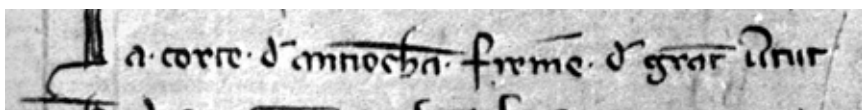 La · corte · d̄ antiocha · fremē · d̄ grāt